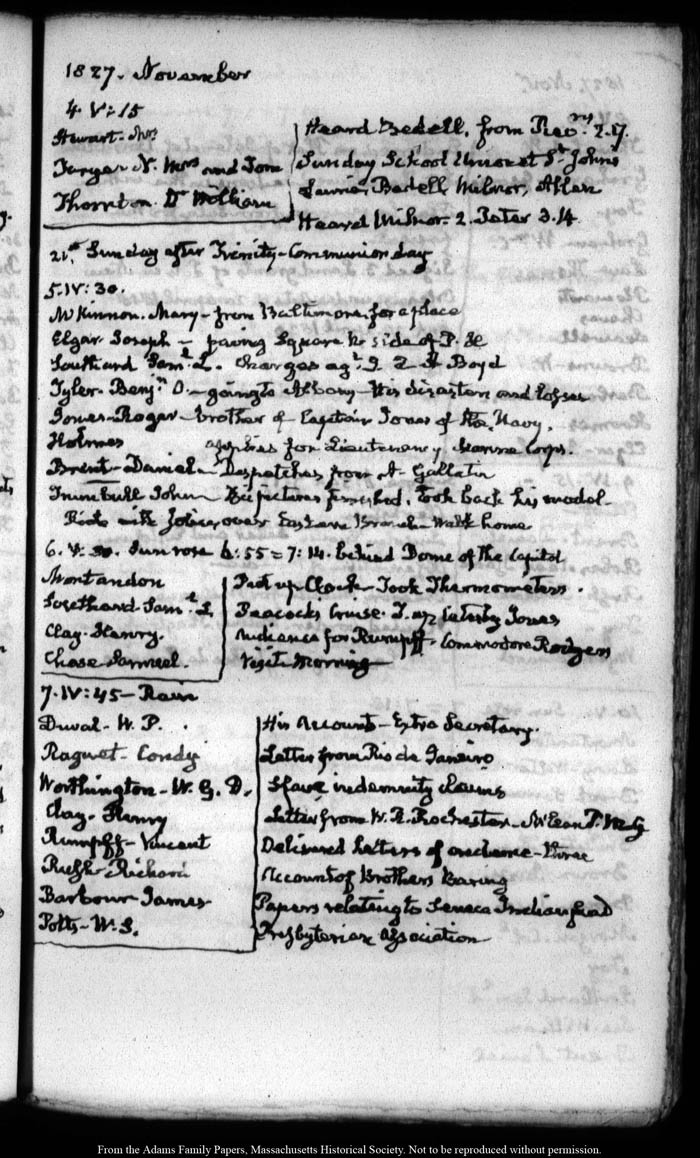 1827. November
4. V:15
Stewart. Mrs Heard Bedell, from Revns. 2.17.
Furyar N. Mrs and Tom Sunday School Union at St. Johns
Thornton. Dr William Bedell, Milnor, Allen
Heard Milnor. 2. Peter 3.14.
21st Sunday after Trinity - Communion day
5. IV:30.
McKinnon. Mary - from Baltimore, for a place
Elgar Joseph - paving Square N. side of P. H
Southard Saml. L. Charges agt. Boyd
Tyler. Benjn. O. - going to Albany - His disasters and losses
Jones - Roger - brother of Captain Jones of the Navy.
Holmes applies for Lieutenancy Marine Corps.
Brent - Daniel - Despatches from A. Gallatin
Trumbull John His pictures finished. Took back his model.
Ride with John, over Eastern Branch - Walk home
6. V:30. Sun rose 6:55 = 7:14. behind Dome of the Capitol
Montandon Put up Clock - Took Thermometers.
Southard - Saml. L Peacocks Cruise. T. ap Catesby Jones
Clay - Henry. Audience for Rumpff - Commodore Rodgers
Chase Samuel. Visit Morning
7. IV:45 - Rain
Duval - W. P. His Account - Extra Secretary.
Raguet - Condy Letter from Rio de Janeiro
Worthington - W. G. D. Slave indemnity Claims
Clay - Henry Letter from W. B. Rochester - McLean P. M. G
Rumpff - Vincent Delivered Letters of credence - three
Rush - Richard Account of Brothers Baring
Barbour James Papers relating to Seneca Indian fund
Potts - W. S. Presbyterian Association
From the Adams Family Papers, Massachusetts Historical Society. Not to be reproduced without permission.